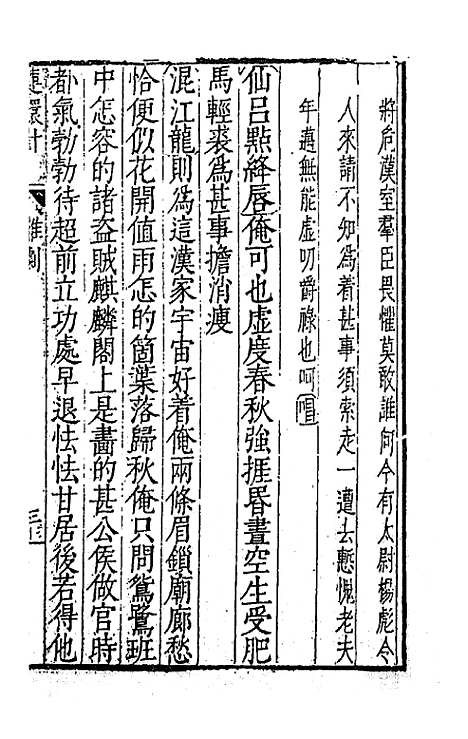 將危漢室羣臣畏懼莫敢誰何今有太尉楊彪令
人來請不知爲着甚事須索走一遭去慙愧老夫
年邁無能虛叨爵祿也呵唱
仙呂點絳唇俺可也虛度春秋強捱昏晝空生受肥
馬輕裘爲甚事擔消瘦
混江龍則爲這漢家宇宙好着俺兩條眉鎖廟廊愁
恰便似花開値雨怎的箇葉落歸秋俺只問鴛鷺班
中怎容的諸盜賊麒麟閣上是畵的甚公侯做官時
都氣勃勃待超前立功處早退怯怯甘居後若得他
連環計 雜劇 三